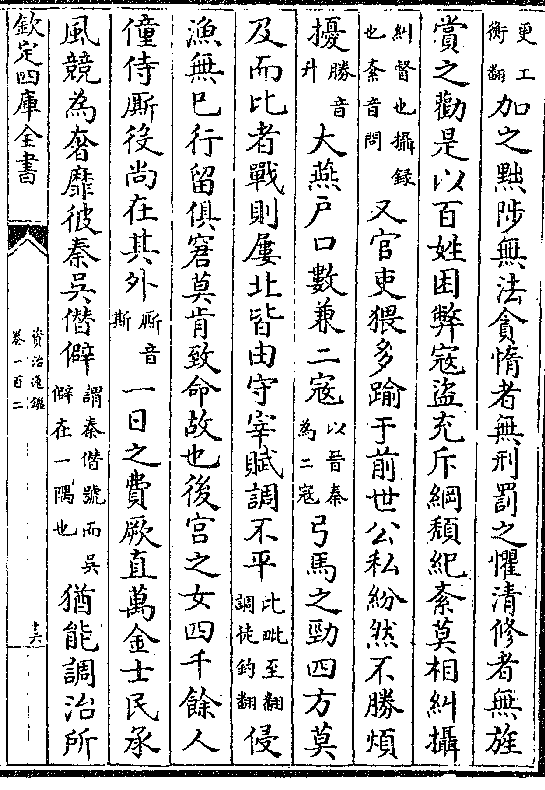 更工衡翻加之黜陟無法貪惰者無刑罰之懼清修者無旌
賞之勸是以百姓困弊寇盜充斥綱頽紀紊莫相糾攝
糾督也攝録也紊音問又官吏猥多踰于前世公私紛然不勝煩
擾勝音升大燕户口數兼二寇以晉秦為二寇弓馬之勁四方莫
及而比者戰則屢北皆由守宰賦調不平比毗至翻調徒釣翻侵
漁無已行留俱窘莫肯致命故也後宫之女四千餘人
僮侍厮役尚在其外厮音斯一日之費厥直萬金士民承
風競為奢靡彼秦吳僭僻謂秦僭號而吳僻在一隅也猶能調治所
欽定四庫全書
資治通鑑
卷一百二
十六